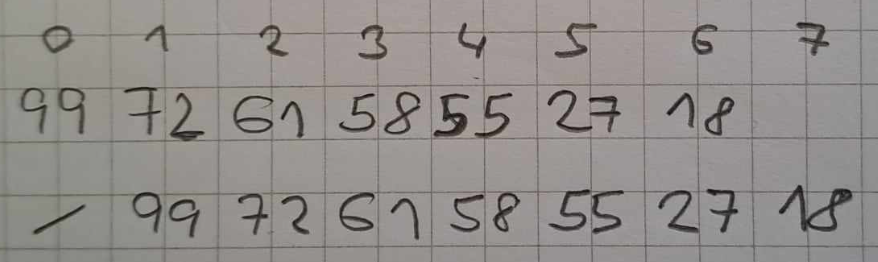 0 1 2 3 4 5 6 7
99 72 61 58 55 27 18
- 99 72 61 58 55 27 18